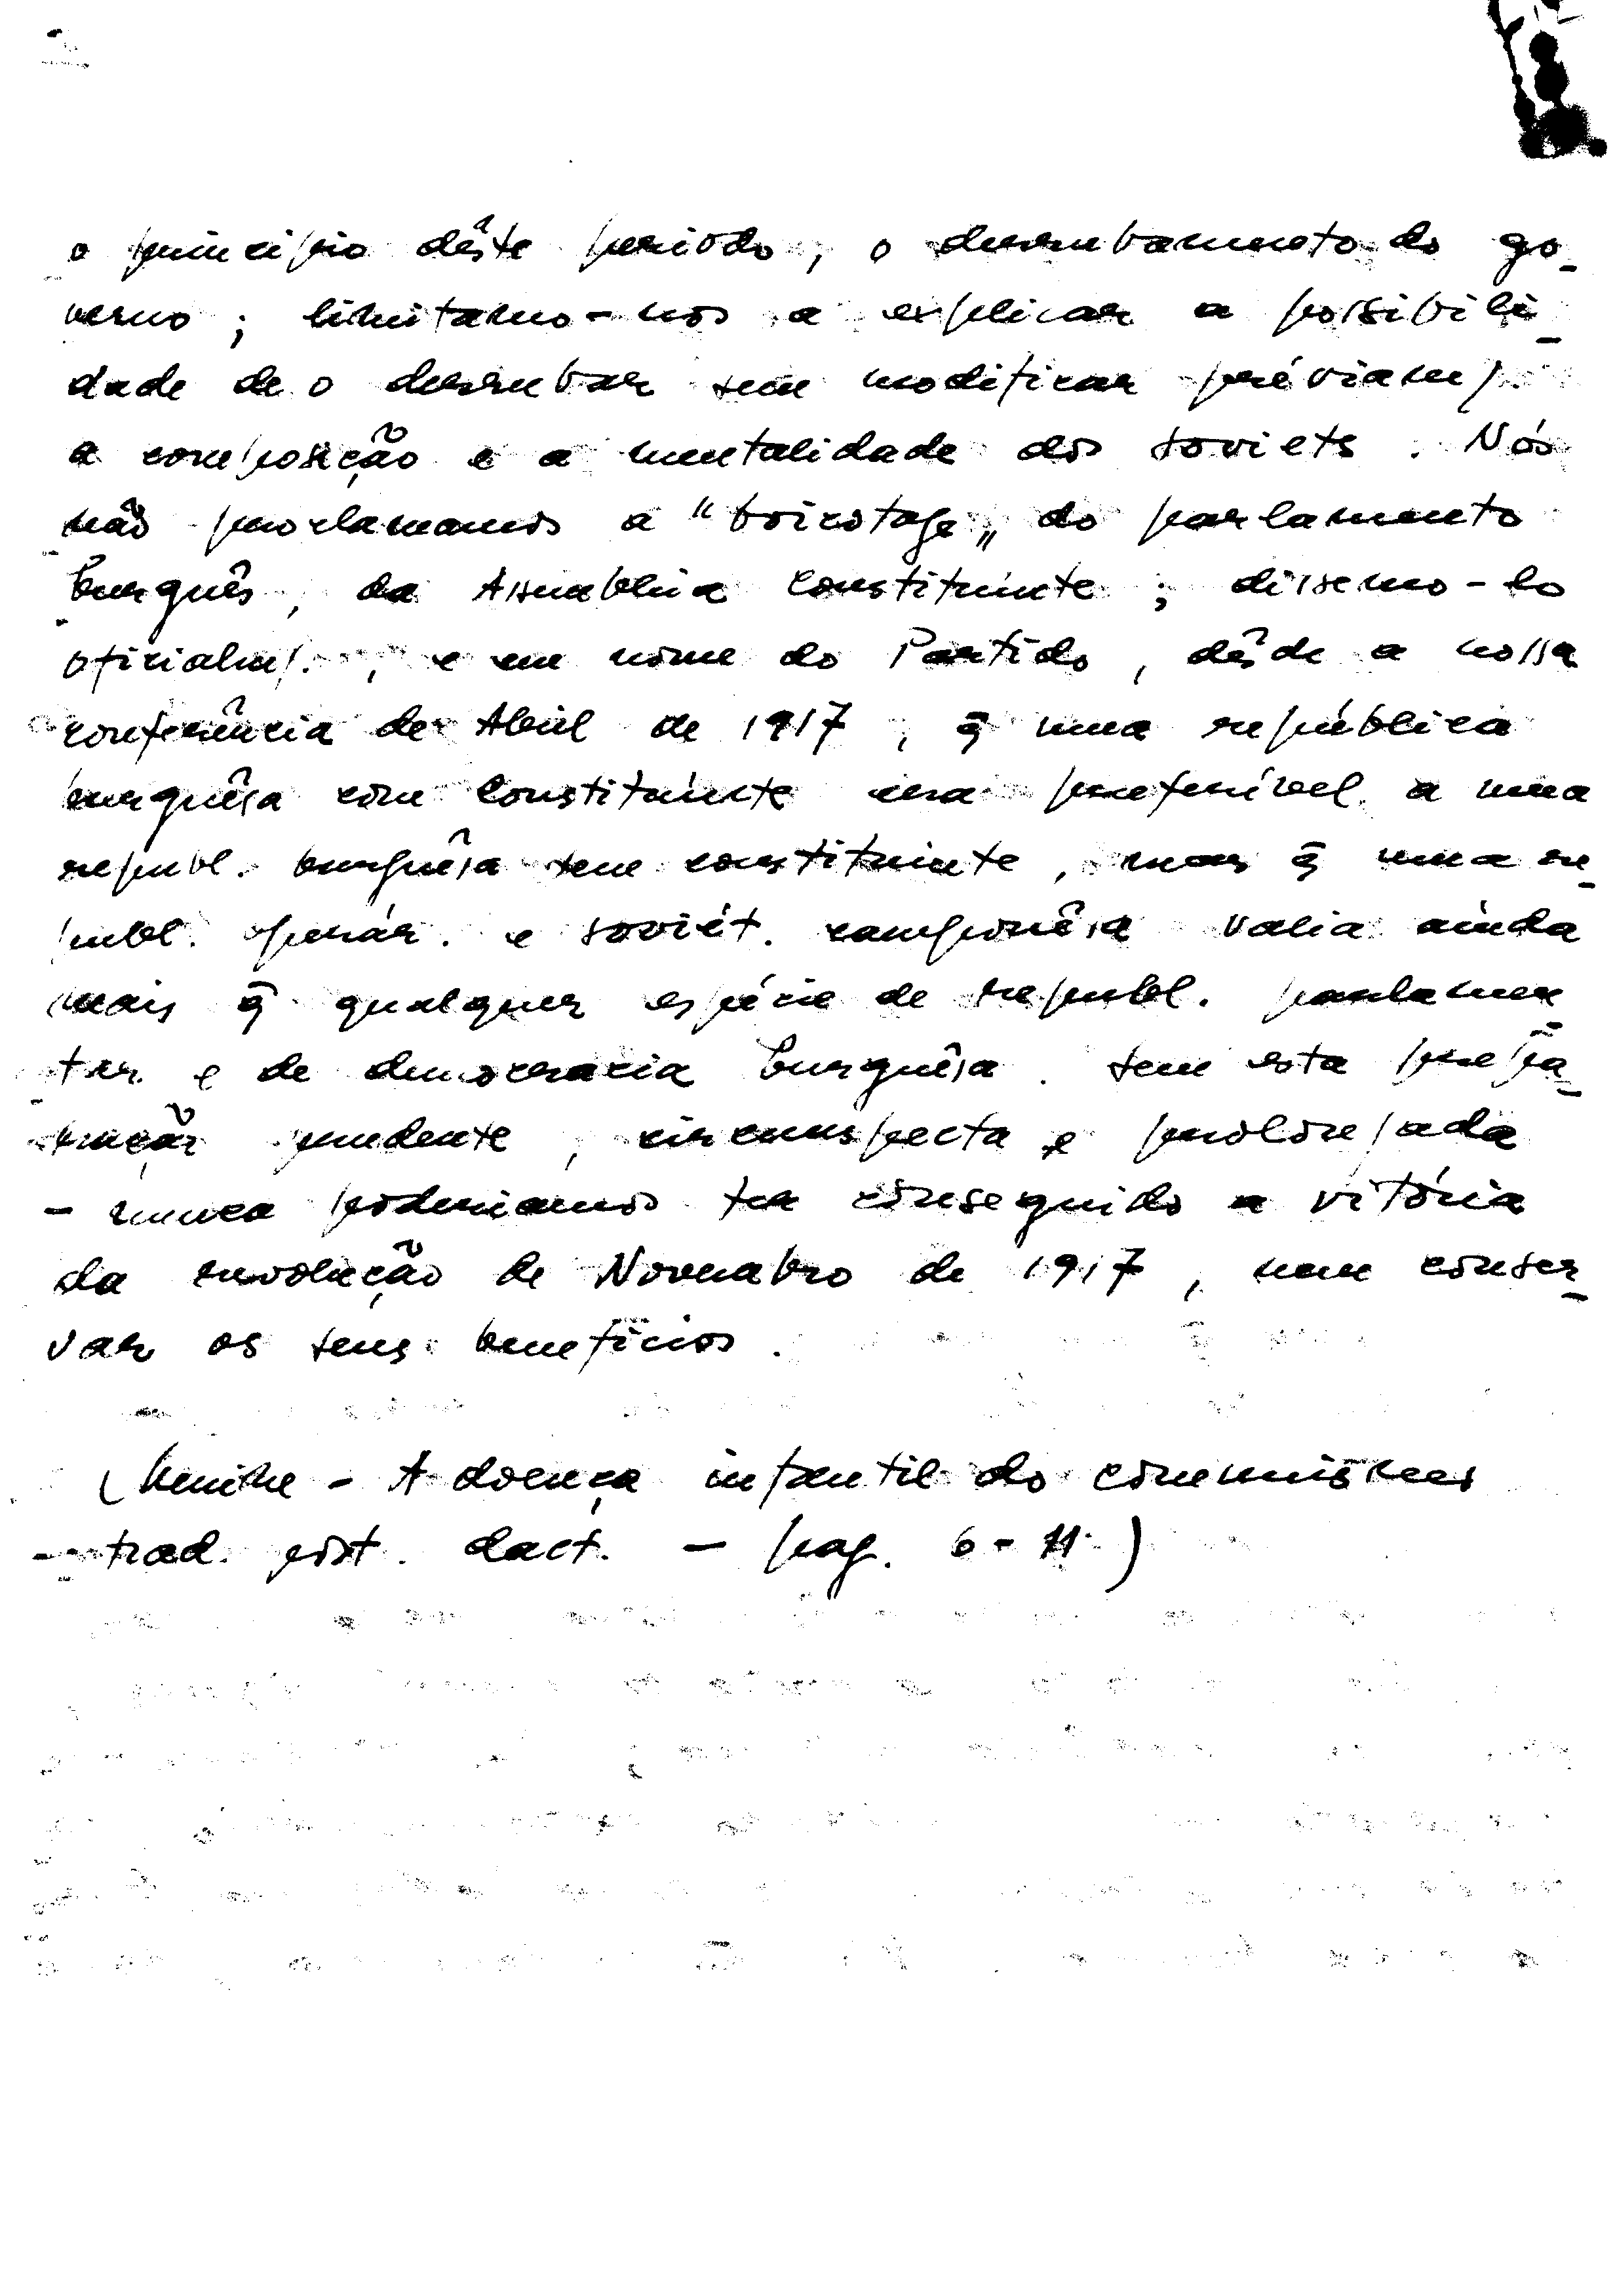 o princípio dêste periodo, o derrubamento do go_
verno; limitamo-nos a explicar a possibili_
dade de o derrubar sem modificar préviam/.
a composição e a mentalidade dos soviets. Nós
não proclamamos a "boicotage„ do parlamento
burguês, da Assembleia Constituinte; dissemo-lo
oficialm/., e em nome do Partido, dêsde a nossa
conferência de Abril de 1917, q̃ uma república
burguêsa com Constituinte era preferível a uma
republ. burguêsa sem constituinte, mas q̃ uma re_
publ. operár. e soviét. camponêsa valia ainda
mais q̃ qualquer espécie de republ. parlamen_
tar e de democracia burguêsa. Sem esta prepa_
ração prudente, circunspecta e prolongada
- nunca poderiamos ter conseguido a vitória
da revolução de Novembro de 1917, nem conser_
var os seus benefícios.
(Lenine - A doença infantil do comunismo
- trad. port. dact. - pag. 6 - 11)